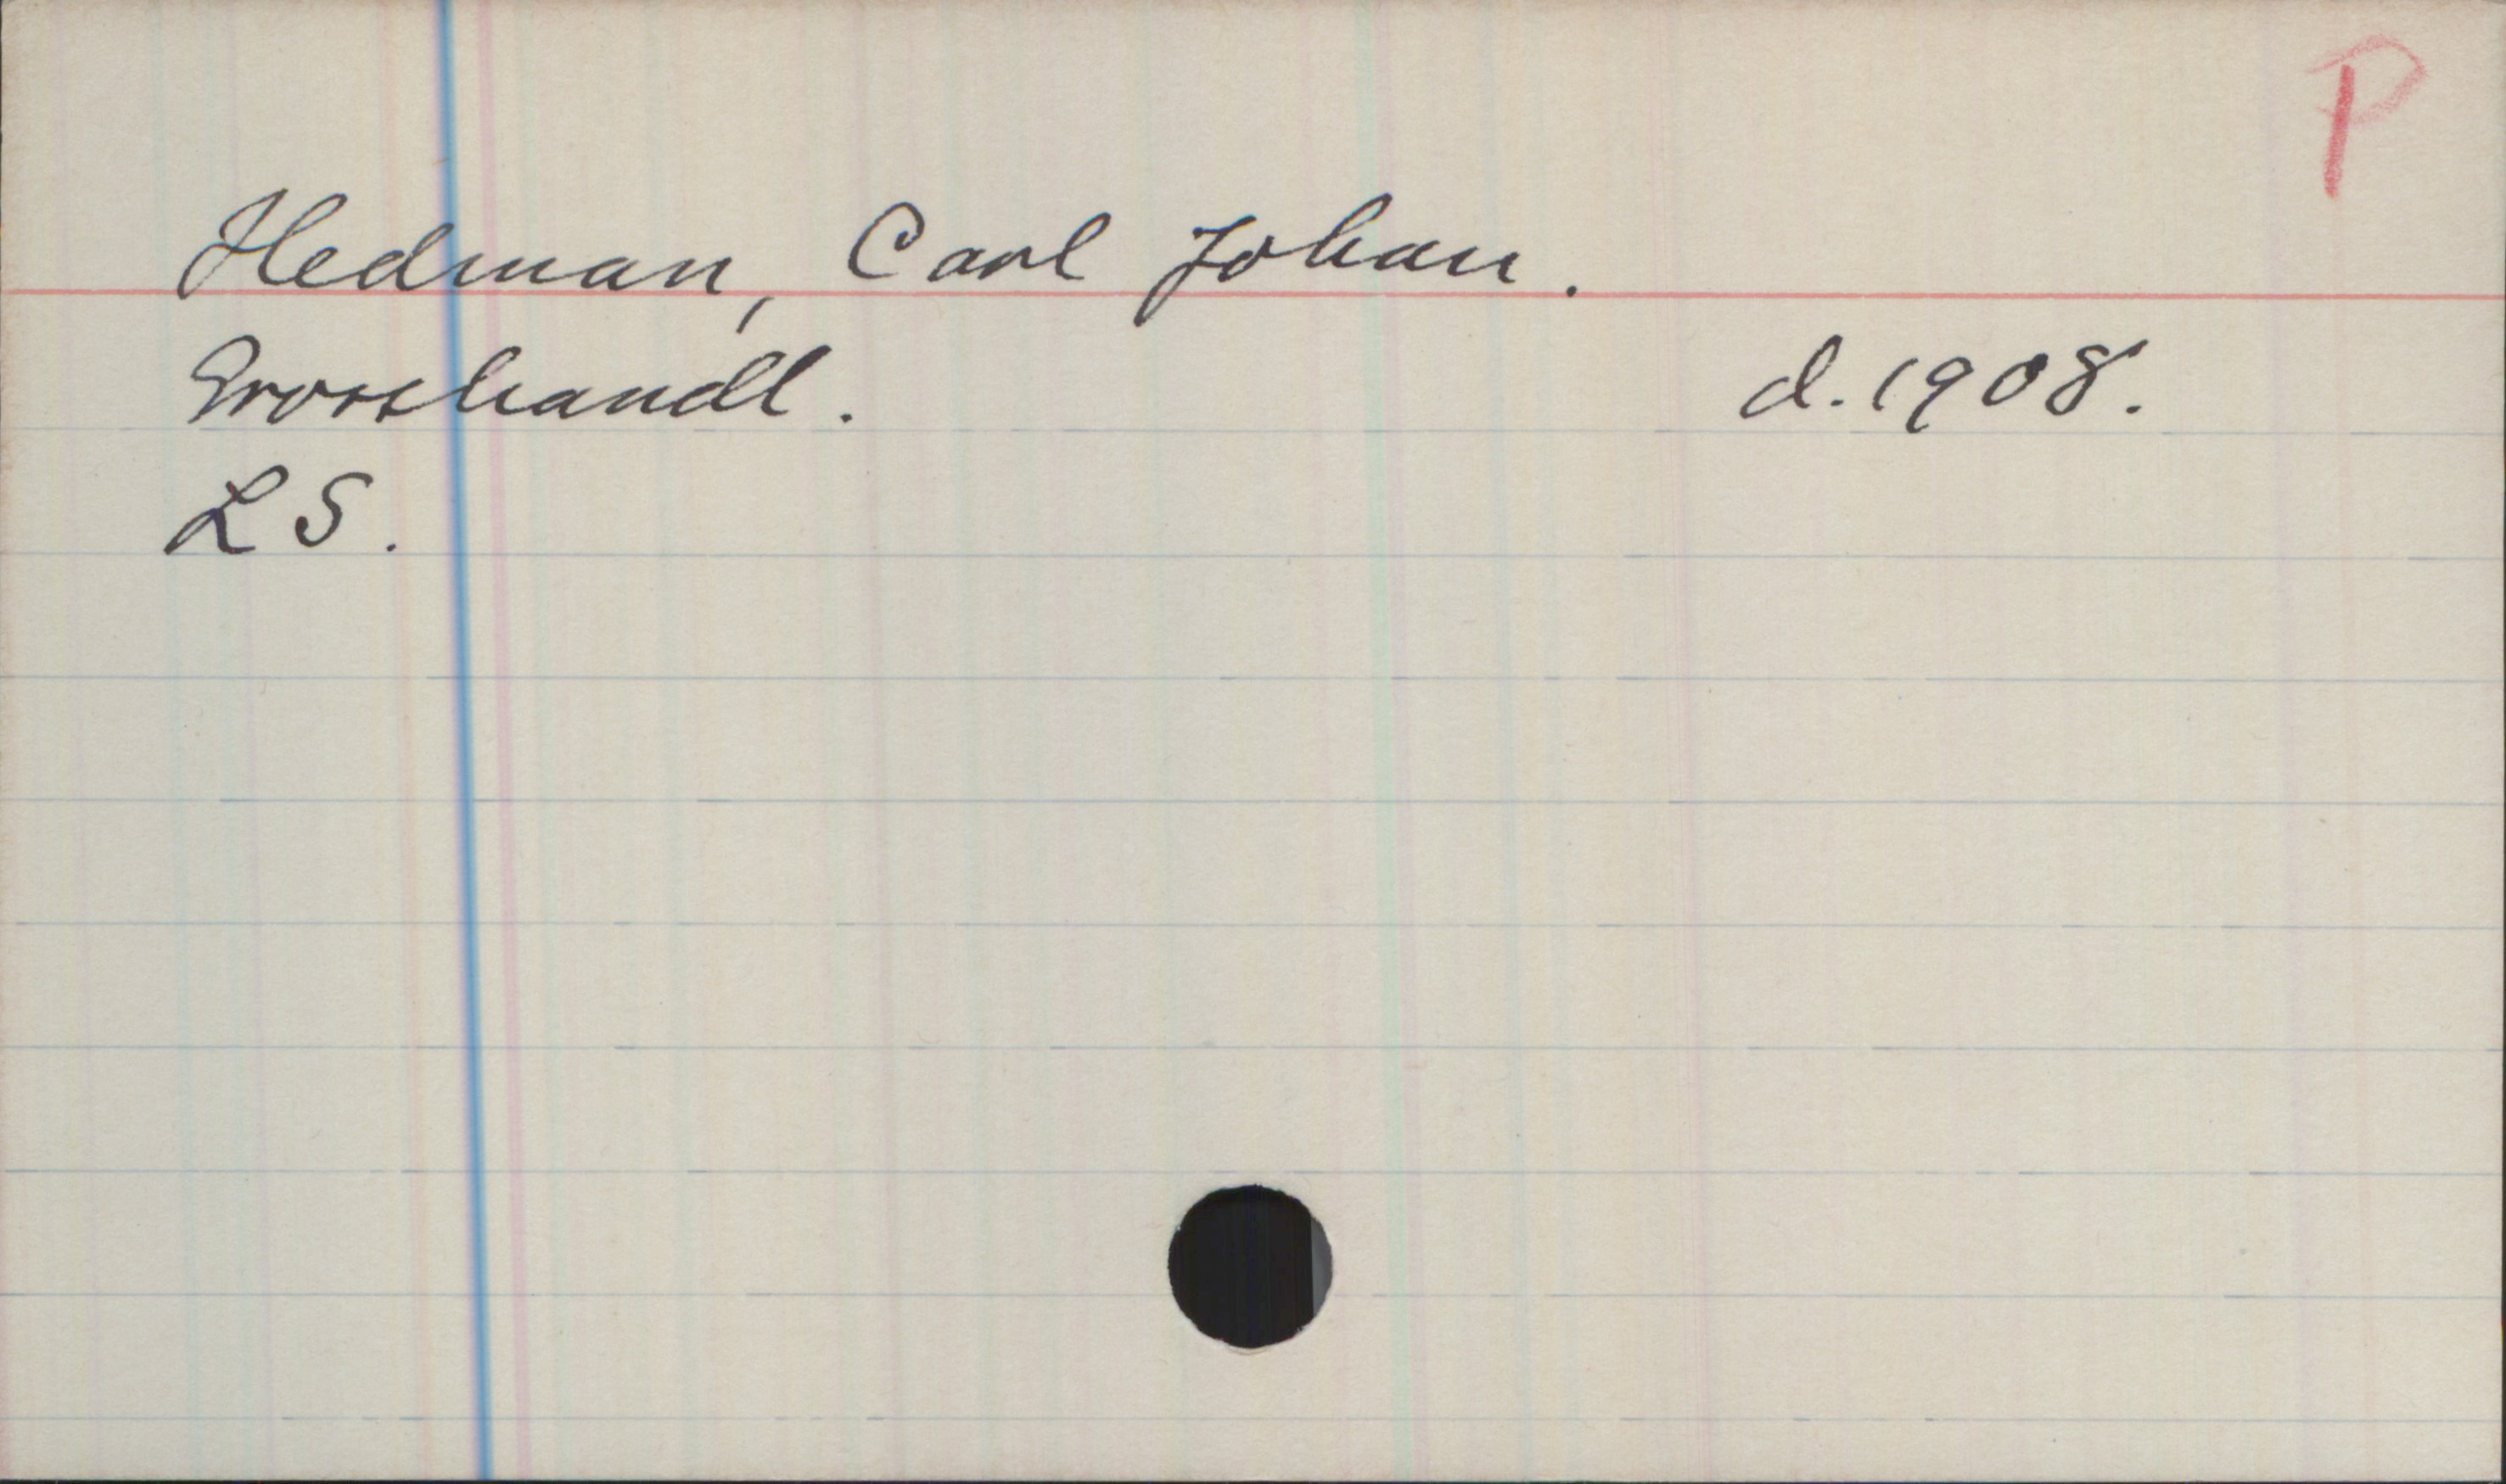 P
Hedman, Carl Johan.
Grosshandl. d. 1908.
LS.